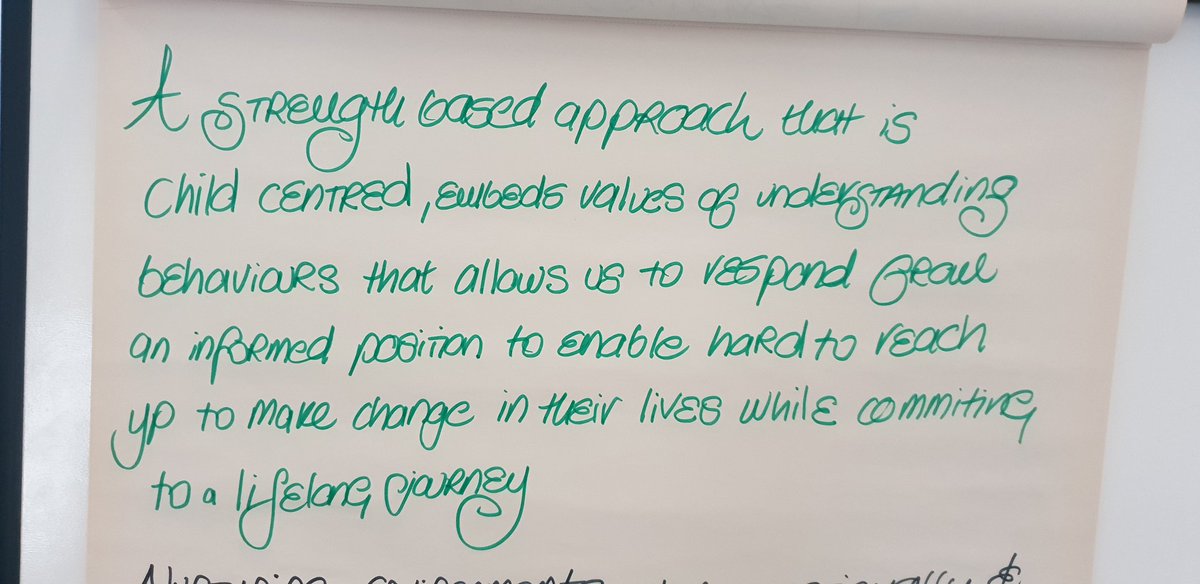 A strength based approach that is
Child centred, embeds values of understanding
behaviours that allows us to respond from
an informed position to enable hard to reach
yp to make change in their lives while commiting
to a lifelong journey